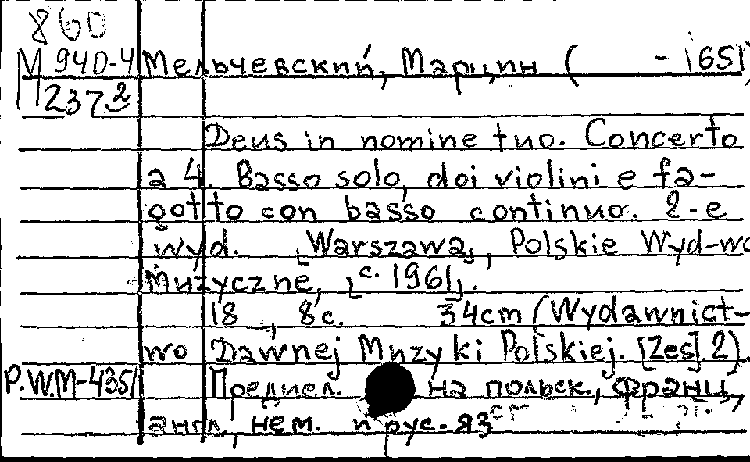 860
М 940-4 Мельчевский, Марцин ( - 1651)
237 2
Deus in nomine tuo. Concerto
a 4. Basso solo, doi violini e fa-
gotto con basso continuo. 2-e
wyd. [Warszawa], Polskie Wyd-wo
Muzyczne, [c. 1961].
18 , 8 c. 34 cm (Wydawnict-
wo Dawnej Muzyki Polskiej. [Zesz.] 2)
P.W.M-4351 Предисл. на польск., франц.,
англ., нем. и рус. яз